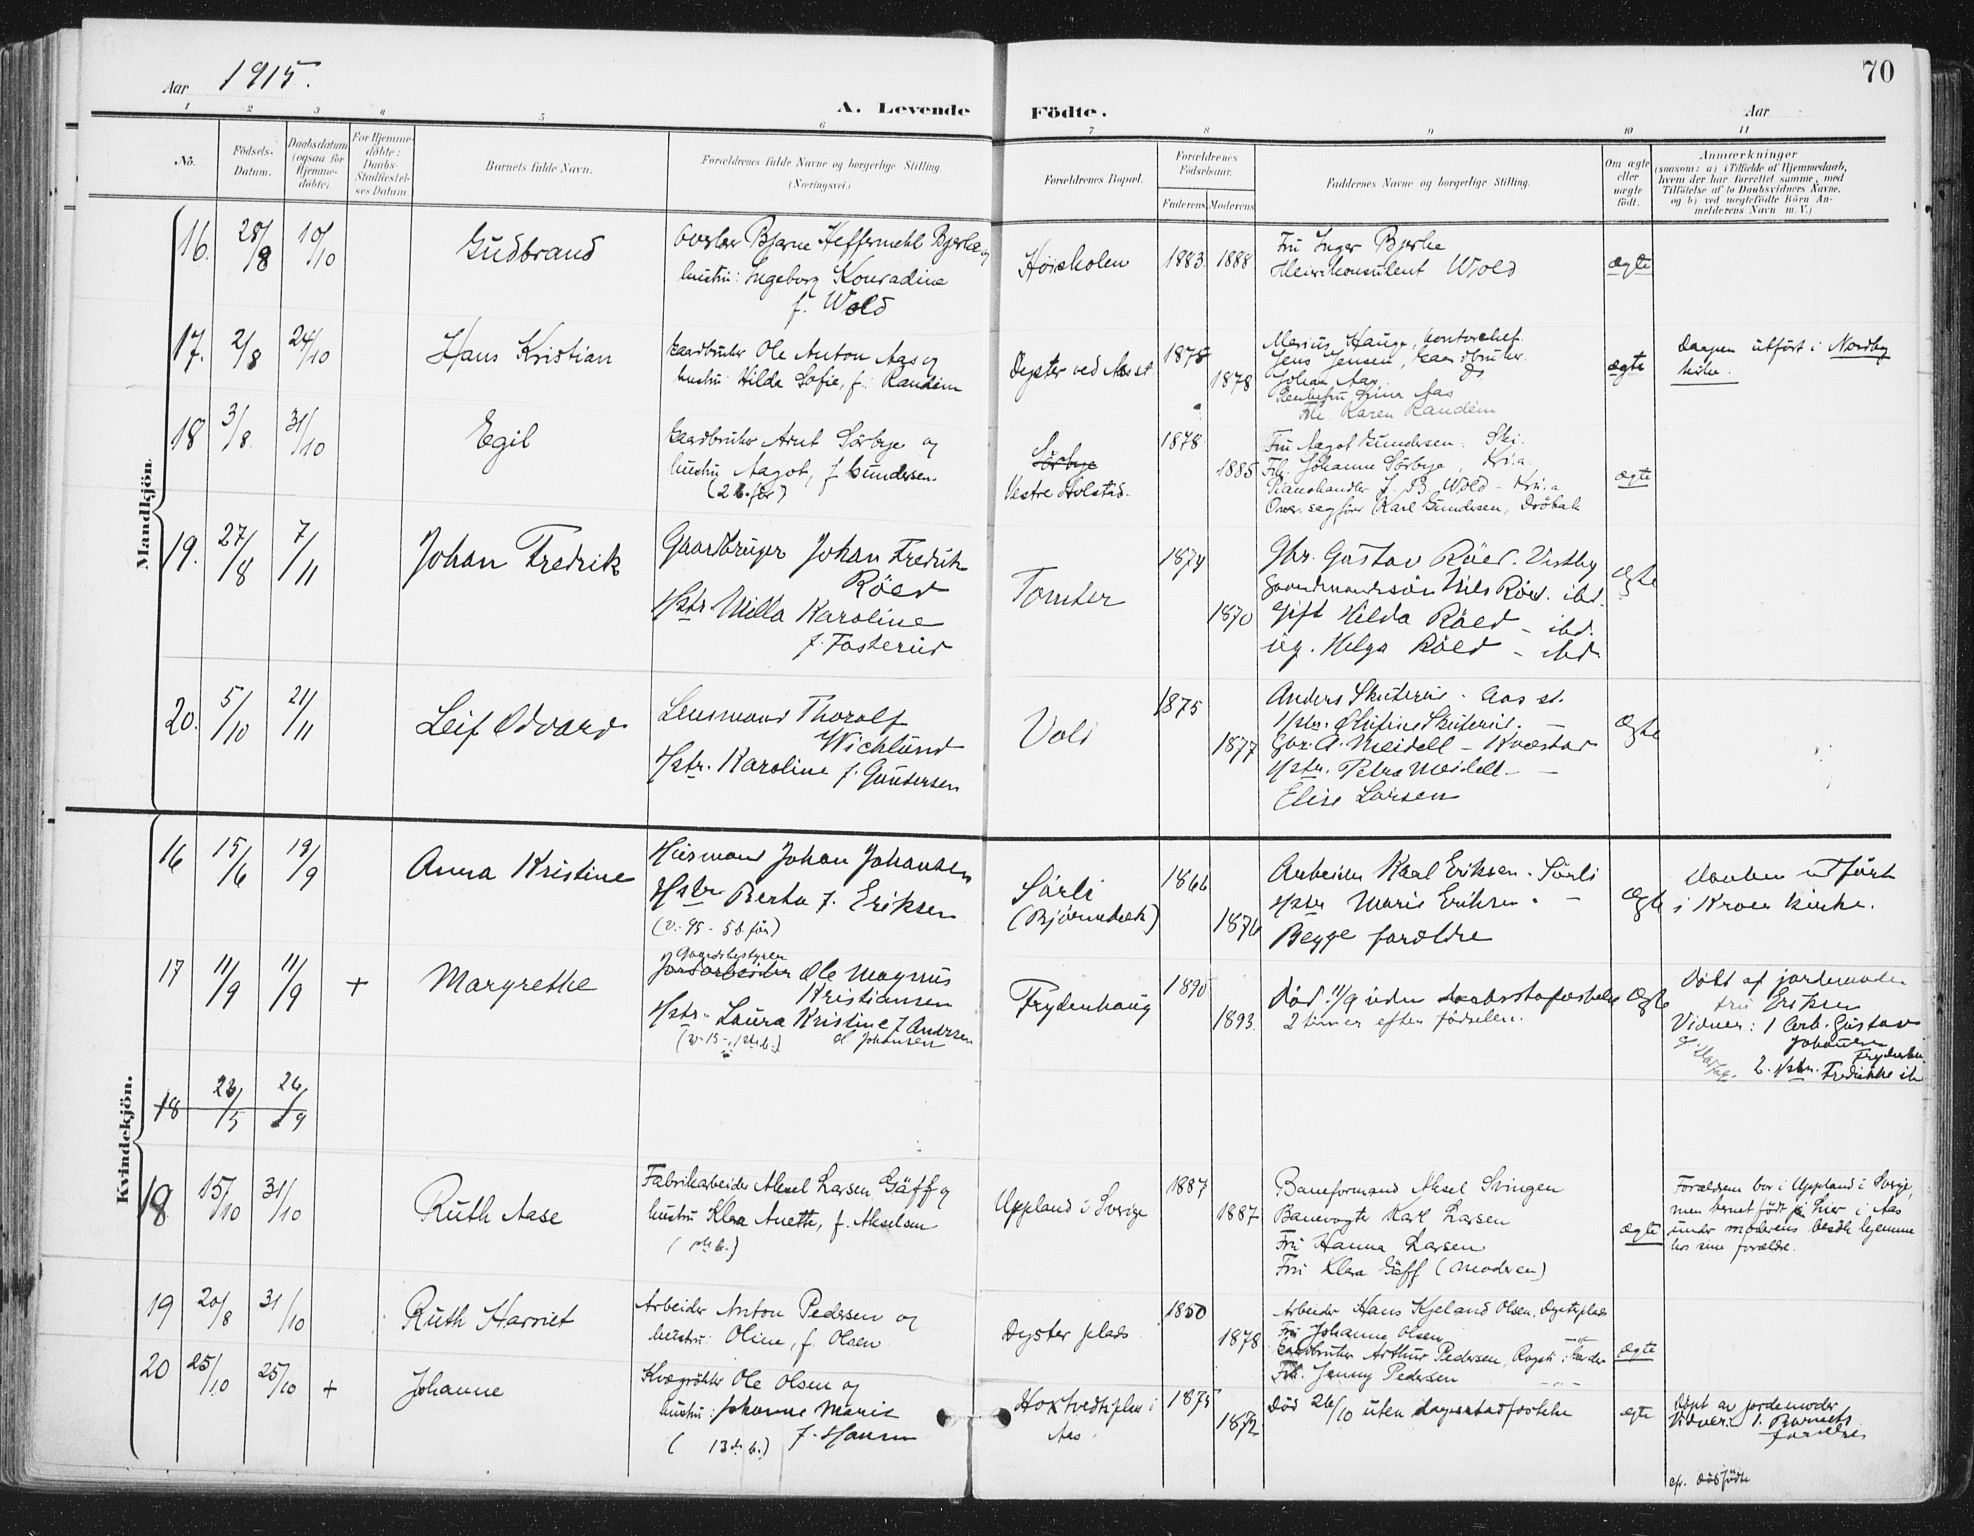 Aar 1915.
70
A. Levende Födte.
Aar
1 2 3 4 5 6 7 8 9 10 11
No.
Födsels-Datum.
Daabsdatum (ogsaa for Hjemmedöbte).
For Hjemmedöbte: Daabs-Stadfæstelses Datum.
Barnets fulde Navn.
Forældrenes fulde Navne og borgerlige Stilling. (Næringsvei.)
Forældrenes Bopæl.
Forældrenes Födselsaar.
Faderens. Moderens.
Faddernes Navne og borgerlige Stilling.
Om ægte eller uægte födt.
Anmærkninger
(saasom: a) i Tilfælde af Hjemmedaab, hvem der har forrettet samme, med Tilföielse af to Daabsvidners Navne, og b) ved uægtefödte Börn Anmelderens Navn m. V.)
Mandkjön.
16. 28/8 10/10 Gudbrand
Overlær Bjarne Heffermehl Bjerke og
hustru: Ingeborg Konradine
f. Wold
Höiskolen 1883. 1888
Fru Inger Bjerke
Meierikonsulent Wold
ægte
17. 2/8 24/10 Hans Kristian
Gaardbruker Ole Anton Aas og
hustru Hilda Sofie, f. Randem
Dyster ved Aas st 1875 1878
Marius Hauge, kontorchef.
Jens Jensen, Gaardbruker.
Johan Aas. Do
Enkefru Lina Aas
Frk. Karen Randem
ægte
Daapen utfört i Nordby
kirke.
18 3/8 31/10 Egil
Gaardbruker Arnt Sörbye og
hustru Aagot, f. Gundersen.
(2 b. för)
Sörbye
Vestre Holstad.
1878 1885
Fru Aagot Gundersen. Ski.
Frk. Johanne Sörbye, Kr.a.
J. B. Wold - Kr.a
Over. sagförer Karl Gundersen, Dröbak
ægte
19. 27/8 7/11 Johan Fredrik
Gaardbruger Johan Fredrik
Röed
Hstr. Milla Karoline
f. Fosterud
Tomter 1874 1870
Gbr. Gustav Röed. Vestby
Gaardmandssön Nils Röed. ibd.
Gift Hilda Röed - ibd.
ug. Helga Röed - ibd.
Ægte
20. 5/10 21/11 Leif Odvard
Lensmand Thoralf
Wichlund
Hstr. Karoline f. Gundersen
Vold 1875 1877
Anders Skuterud. Aas st.
Hstr. Olufine Skuterud. -
Gbr. A. Meidell - Kvæstad
Hstr. Petra Meidell - -
Elise Larsen
Ægte
Kvindekjön.
16 15/6 19/9 Anna Kristine
Husmand Johan Johansen
Hstr Berta f. Eriksen
(v. 95 - 5 b för)
Sörli
(Bjørnebæk)
1866 1876
Arbeider Karl Eriksen. Sörli
Hstr Marie Eriksen. -
Begge forældre
Ægte
Daaben udfört
i Kroer kirke.
17 11/9 11/9 + Margrethe
Gaardsbestyrer
Jordarbeider Ole Magnus
Kristiansen
Hstr. Laura Kristine f Andersen
(v-15-, 1ste b.) el Johansen
Frydenhaug 1890 1893.
Död 11/9 uden daabsstadfæstelse
2 timer efter födselen.
Ægte
Döbt af jordemoder
fru Eriksen
Vidner: 1 Arb. Gustav
Johansen
2. Hstr. Fredrikke ib
18 23/5 26/9
18 15/10 31/10 Ruth Aase
Fabrikarbeider Aksel Larsen Gäff og
hustru Klara Anette, f. Akselsen
(1ste b.)
Uppland i Sverige
1887 1887
Baneformand Aksel Svingen
Banevogter Karl Larsen
Fru Hanna Larsen
Fru Klara Gäff (Moderen)
ægte
Forældrene bor i Uppland i Sverige,
men barnet födt her i Aas
under moderens besök hjemme
hos sine forældre.
19 20/8 31/10 Ruth Harriet
Arbeider Anton Pedersen og
hustru: Oline, f. Olsen
Dyster plads. 1850 1878
Arbeider Hans Kjeland Olsen, Dysterplads
Fru Johanne Olsen -"-
Gaardbruker Arthur Pedersen,
Frk. Jenny Pedersen -"-
ægte
20 25/10 25/10 + Johanne
Kvægrökter Ole Olsen og
hustru: Johanne Marie
(13de b.) f. Hansen
Hoxtvedtsplas i
Aas
1875 1872
Död 26/10 uten dagsstadfæstelse
ægte
Döpt av jordemoder
Vidner: 1. Barnets
forældre
cfr. dödfödte